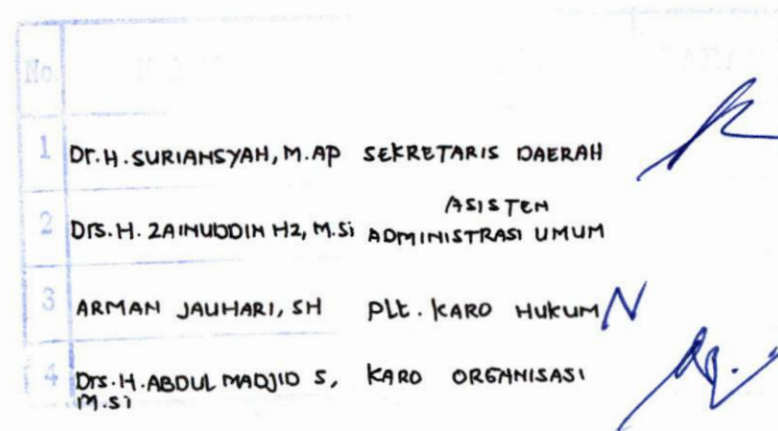 No.
1 Dr. H. SURIANSYAH, M.AP SEKRETARIS DAERAH
2 Drs. H. ZAINUDDIN HZ, M.Si ASISTEN ADMINISTRASI UMUM
3 ARMAN JAUHARI, SH Plt. KARO HUKUM
4 Drs. H. ABDUL MADJID S, KARO ORGANISASI
M.Si